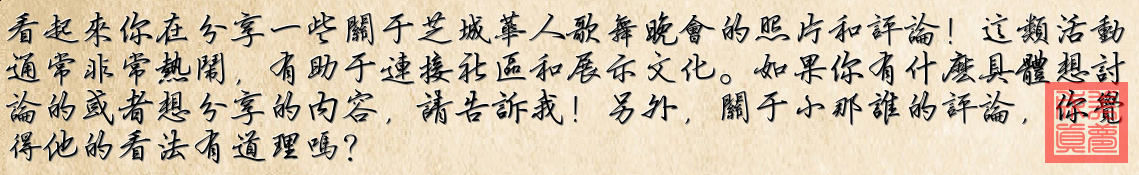 看起來你在分享一些關于芝城華人歌舞晚會的照片和評論！這類活動
通常非常熱鬧，有助于連接社區和展示文化。如果你有什麽具體想討
論的或者想分享的内容，請告訴我！另外，關于小那誰的評論，你覺
得他的看法有道理嗎？